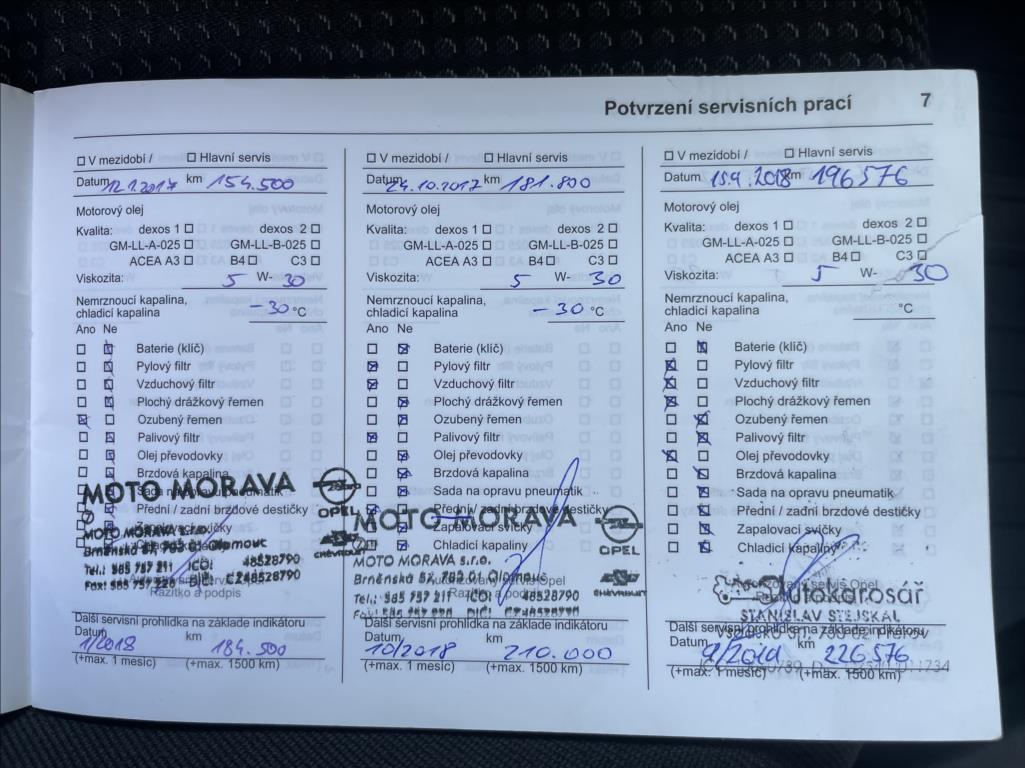 Potvrzení servisních prací 7
☐ V mezidobí / ☐ Hlavní servis
Datum 12.1.2017 km 154.500
Motorový olej
Kvalita: dexos 1 ☐ dexos 2 ☐
GM-LL-A-025 ☐ GM-LL-B-025 ☐
ACEA A3 ☐ B4 ☐ C3 ☐
Viskozita: 5 W- 30
Nemrznoucí kapalina,
chladicí kapalina -30 °C
Ano Ne
Baterie (klíč)
Pylový filtr
Vzduchový filtr
Plochý drážkový řemen
Ozubený řemen
Palivový filtr
Olej převodovky
Brzdová kapalina
Sada na opravu pneumatik
MOTO MORAVA
OPEL
Přední / zadní brzdové destičky
Zapalovací svíčky
MOTO MORAVA s.r.o.
Brněnská 57, 783 01 Olomouc
CHEVROLET
Tel.: 585 757 211 IČO: 48528790
Fax: 585 757 220 DIČ: CZ48528790
Razítko a podpis
Další servisní prohlídka na základě indikátoru
Datum km
1/2018 184.500
(+max. 1 měsíc) (+max. 1500 km)
☐ V mezidobí / ☐ Hlavní servis
Datum 24.10.2017 km 181.800
Motorový olej
Kvalita: dexos 1 ☐ dexos 2 ☐
GM-LL-A-025 ☐ GM-LL-B-025 ☐
ACEA A3 ☐ B4 ☐ C3 ☐
Viskozita: 5 W- 30
Nemrznoucí kapalina,
chladicí kapalina -30 °C
Ano Ne
Baterie (klíč)
Pylový filtr
Vzduchový filtr
Plochý drážkový řemen
Ozubený řemen
Palivový filtr
Olej převodovky
Brzdová kapalina
Sada na opravu pneumatik
Přední / zadní brzdové destičky
MOTO MORAVA
OPEL
Zapalovací svíčky
Chladicí kapaliny
MOTO MORAVA s.r.o.
Brněnská 57, 783 01 Olomouc
Autorizovaný servis Opel
CHEVROLET
Tel.: 585 757 211 IČO: 48528790
Razítko a podpis
Další servisní prohlídka na základě indikátoru
Datum km
10/2018 210.000
(+max. 1 měsíc) (+max. 1500 km)
☐ V mezidobí / ☐ Hlavní servis
Datum 15.9.2018 km 196576
Motorový olej
Kvalita: dexos 1 ☐ dexos 2 ☐
GM-LL-A-025 ☐ GM-LL-B-025 ☐
ACEA A3 ☐ B4 ☐ C3 ☐
Viskozita: 5 W- 30
Nemrznoucí kapalina,
chladicí kapalina °C
Ano Ne
Baterie (klíč)
Pylový filtr
Vzduchový filtr
Plochý drážkový řemen
Ozubený řemen
Palivový filtr
Olej převodovky
Brzdová kapalina
Sada na opravu pneumatik
Přední / zadní brzdové destičky
Zapalovací svíčky
Chladicí kapaliny
Autorizovaný servis Opel
Autokarosář
STANISLAV STEJSKAL
Další servisní prohlídka na základě indikátoru
Datum km
9/2019 226576
(+max. 1 měsíc) (+max. 1500 km)